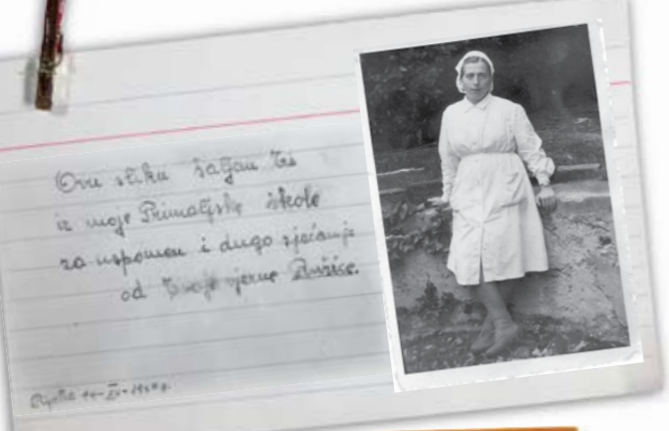 Ovu sliku šaljem Ti
iz moje Primaljske škole
za uspomenu i dugo sjećanje
od Tvoje vjerne Ružice.
Rijeka